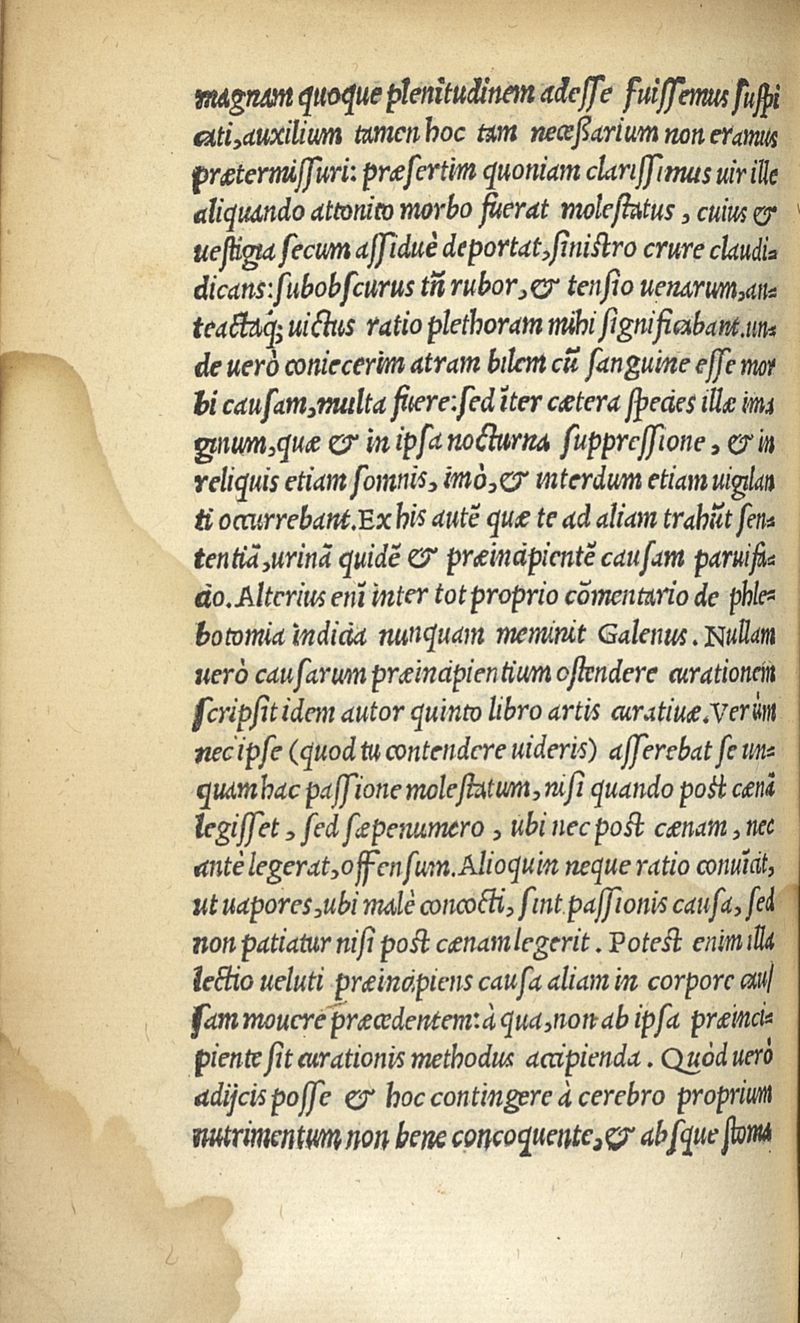 magnam quoque plenitudinem adesse fuissemus suspi
cati, auxilium tamen hoc tam necessarium non eramus
prætermissuri: præsertim quoniam clarissimus uir ille
aliquando attonito morbo fuerat molestatus, cuius &
uestigia secum assiduè deportat, sinistro crure claudi=
dicans: subobscurus tñ rubor, & tensio uenarum, an=
teactaq́; uictus ratio plethoram mihi significabant. un=
de uerò coniecerim atram bilem cũ sanguine esse mor
bi causam, multa fuere: sed ĩter cætera species illæ ima
ginum, quæ & in ipsa nocturna suppressione, & in
reliquis etiam somnis, imò, & interdum etiam uigilan
ti occurrebant. Ex his autẽ quæ te ad aliam trahũt sen=
tentiã, urinã quidẽ & præincipientẽ causam paruifa=
cio. Alterius enĩ inter tot proprio cõmentario de phle=
botomia indicia nunquam meminit Galenus. Nullam
uerò causarum præincipientium ostendere curationem
scripsit idem autor quinto libro artis curatiuæ. Verùm
nec ipse (quod tu contendere uideris) asserebat se un=
quam hac passione molestatum, nisi quando post cænã
legisset, sed sæpenumero, ubi nec post cænam, nec
antè legerat, offensum. Alioquin neque ratio conuĩcit,
ut uapores, ubi malè concocti, sint passionis causa, sed
non patiatur nisi post cænam legerit. Potest enim illa
lectio ueluti præincipiens causa aliam in corpore cau
sam mouere præcedentem: à qua, non ab ipsa præinci=
piente sit curationis methodus accipienda. Quòd uerò
adijcis posse & hoc contingere à cerebro proprium
nutrimentum non bene concoquente, & absque stoma